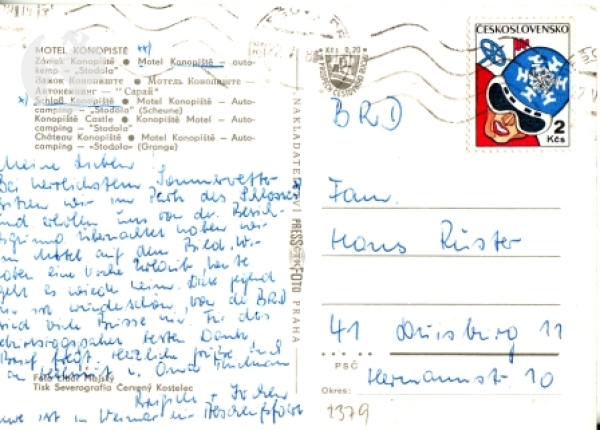 MOTEL KONOPIŠTĚ
Zámek Konopiště ● Motel Konopiště – auto-
kemp – „Stodola"
Замок Конопиште ● Мотель Конопиште –
Автокемпинг – "Сарай"
x) Schloß Konopiště ● Motel Konopiště – Auto-
camping – „Stodola" (Scheune)
Konopiště Castle ● Konopiště Motel – Auto-
camping – "Stodola"
Château Konopiště ● Motel Konopiště – Auto-
camping – «Stodola» (Grange)
Meine Lieben!
Bei herrlichstem Sommerwetter
wir im Park des Schlosses
und erholen uns von der
übernachtet haben wir
im Motel auf dem Bild. Wir
haben eine Woche Urlaub, heute
geht es wieder heim. Die Gegend
ist wunderschön, von der BRD
sind viele Busse hier. Für das
besten Dank,
Brief folgt. Herzliche Grüße
u. Oma
Foto Libor Hajský
Tisk Severografia Červený Kostelec
ist in Weimar im
NAKLADATELSTVÍ PRESSFOTO PRAHA
Kčs 0,20
ČESKOSLOVENSKO
2
Kčs
BRD
Fam.
Hans Rüster
41 Duisburg 11
PSČ
Hermannstr. 10
Okres:
2379